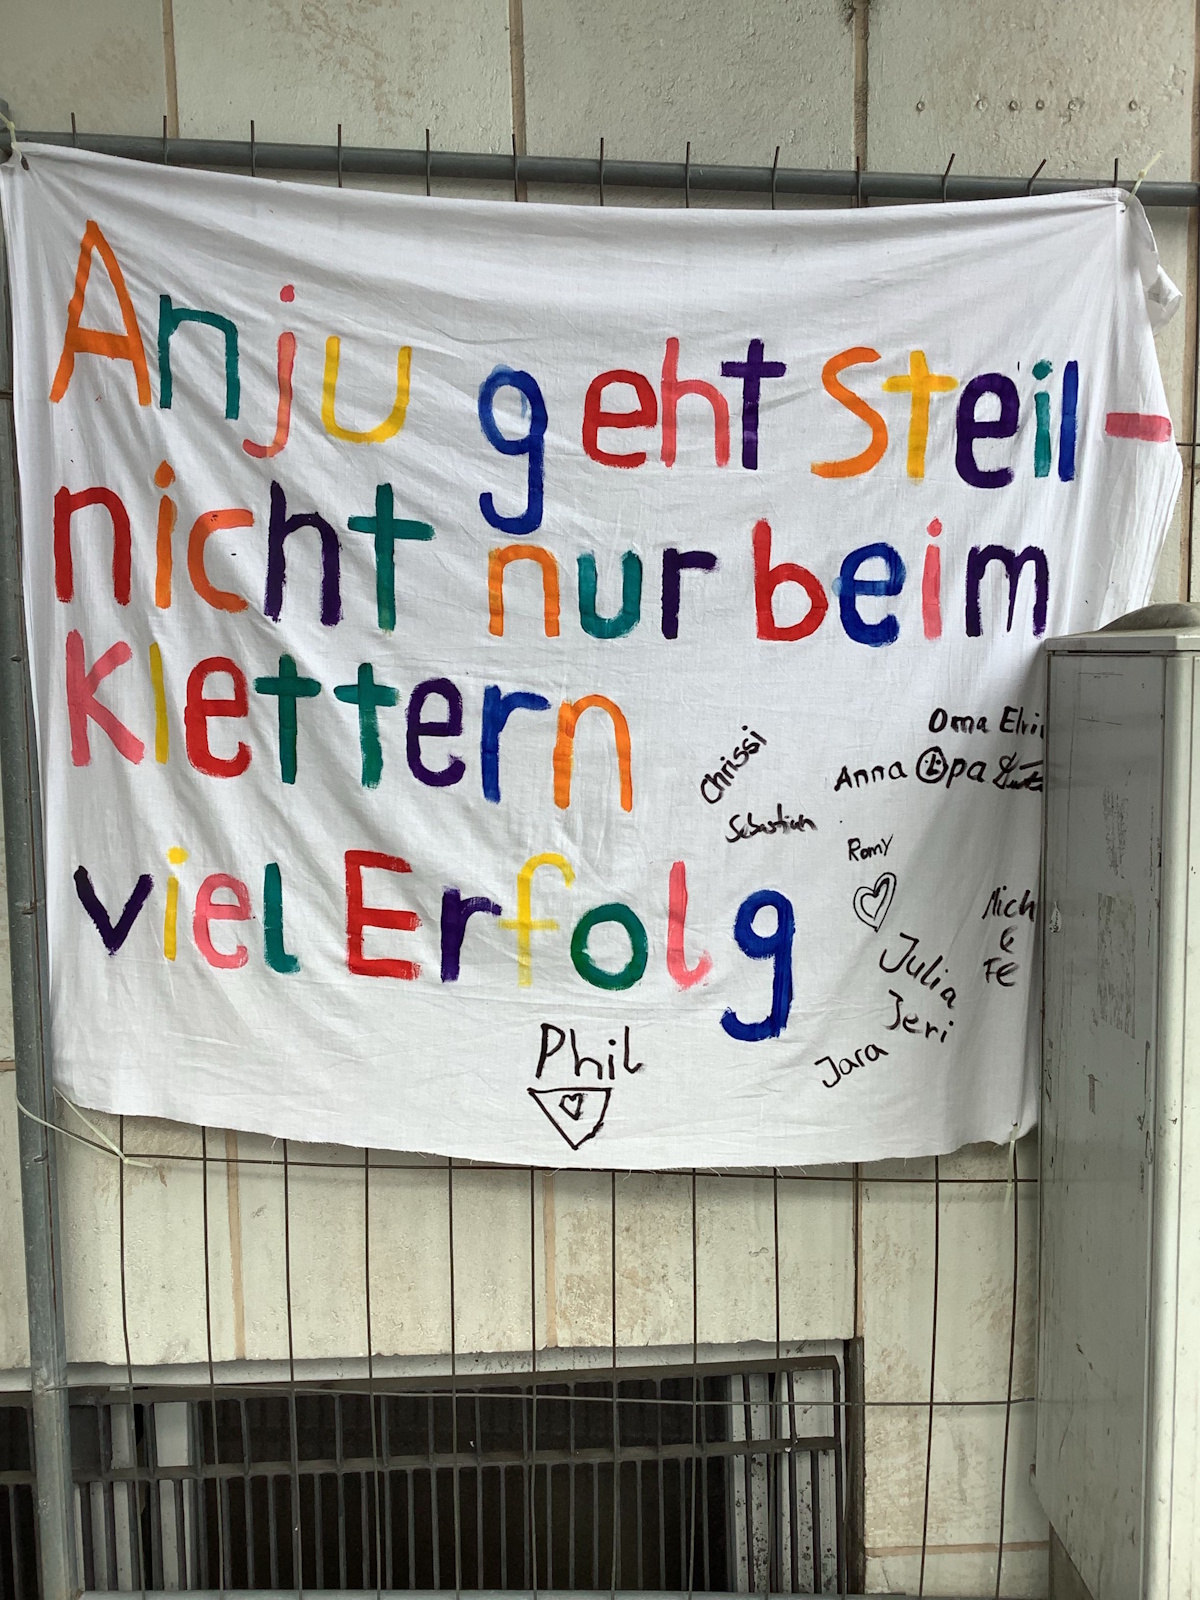 Anju geht Steil-
nicht nur beim
Klettern
viel Erfolg
Chrissi
Sebastian
Oma
Anna Opa
Romy
Julia
Jeri
Jara
Phil